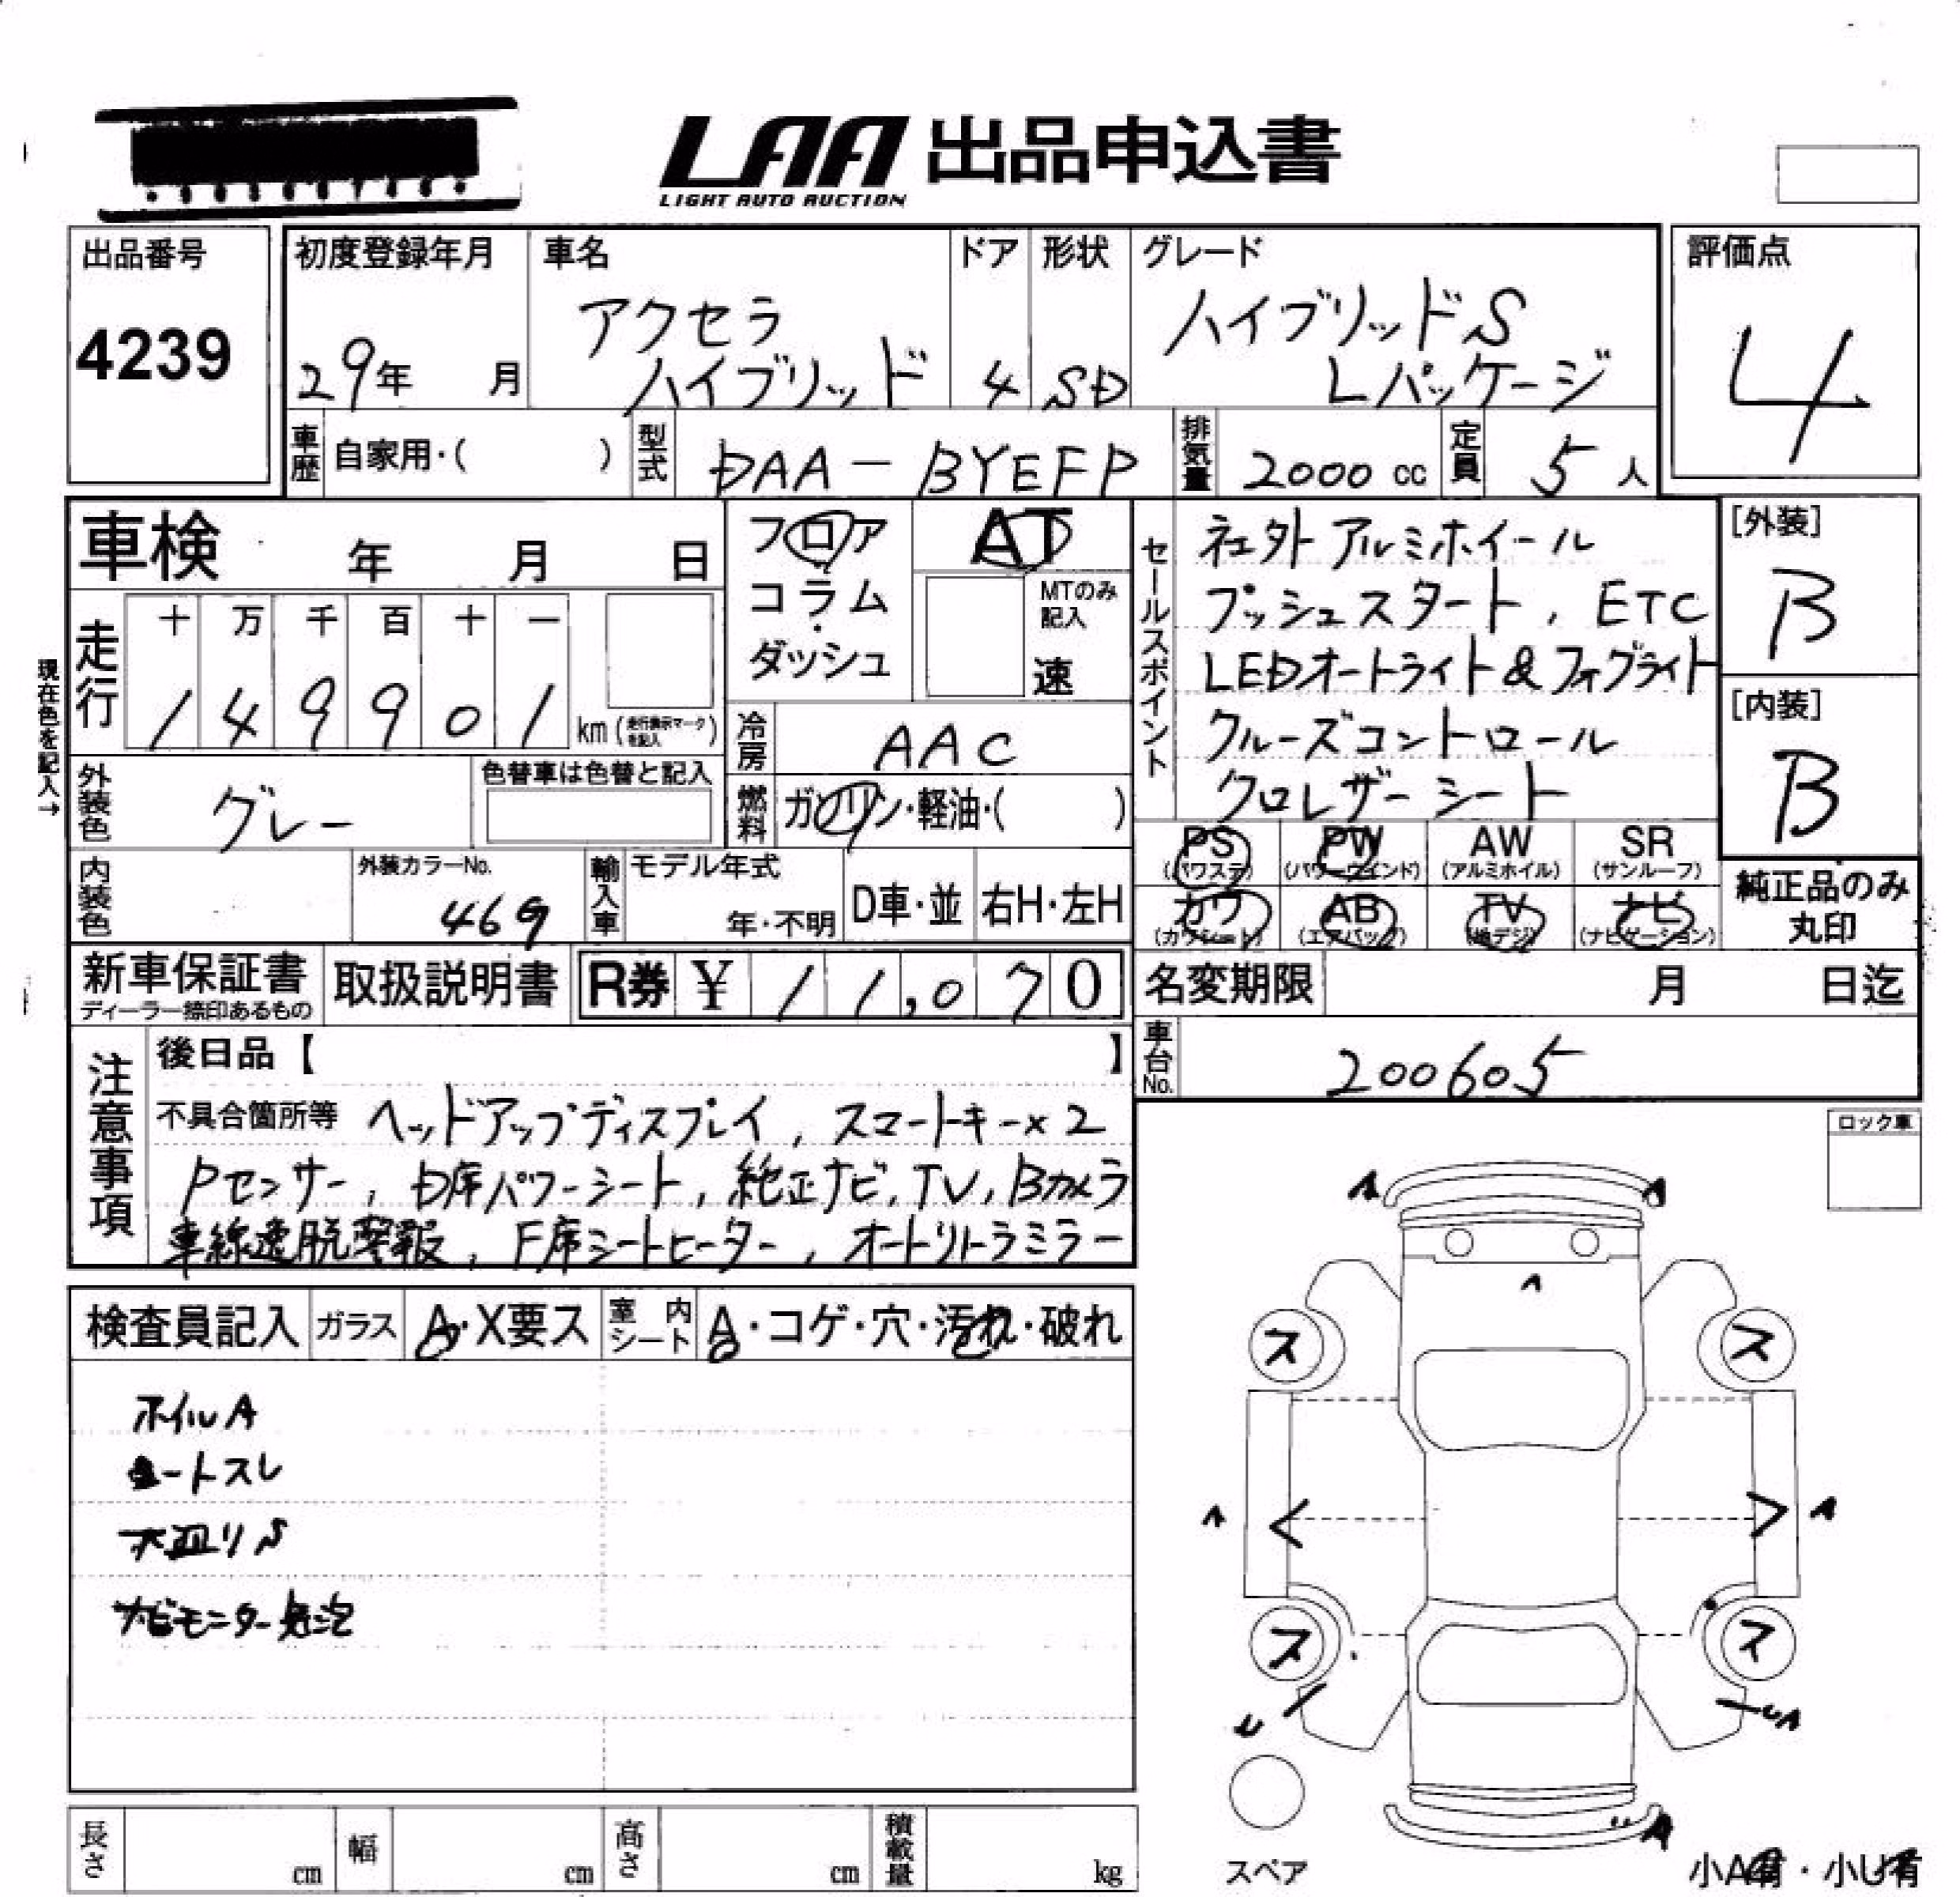 LAA 出品申込書
LIGHT AUTO AUCTION
出品番号
4239
初度登録年月
29年 月
車名
アクセラ
ハイブリッド
ドア
4
形状
SD
グレード
ハイブリッドS
Lパッケージ
評価点
4
車歴 自家用・( )
型式 DAA-BYEFP
排気量 2000 cc
定員 5 人
車検 年 月 日
フロア
コラム
ダッシュ
AT
MTのみ
記入
速
セールスポイント
社外アルミホイール
プッシュスタート, ETC
LEDオートライト&フォグライト
クルーズコントロール
クロレザーシート
[外装]
B
[内装]
B
現在色を記入→
走行
十 万 千 百 十 一
1 4 9 9 0 1 km (走行表示マークを記入)
冷房 AAC
外装色 グレー
色替車は色替と記入
燃料 ガソリン・軽油・( )
PS (パワステ) PW (パワーウインド) AW (アルミホイル) SR (サンルーフ)
カワ (カワシート) AB (エアバッグ) TV (地デジ) ナビ (ナビゲーション)
純正品のみ
丸印
内装色
外装カラーNo.
469
輸入車
モデル年式
年・不明
D車・並
右H・左H
新車保証書
ディーラー捺印あるもの
取扱説明書
R券 ¥ 11,070
名変期限 月 日迄
車台No. 200605
注意事項
後日品【 】
不具合箇所等 ヘッドアップディスプレイ, スマートキー×2
Pセンサー, D席パワーシート, 純正ナビ, TV, Bカメラ
車線逸脱警報, F席シートヒーター, オートリトラミラー
ロック車
検査員記入 ガラス A・X要ス 室内シート A・コゲ・穴・汚れ・破れ
ホイルA
シートスレ
ナビモニター気泡
A A
A
ス ス
A A
ス ス
U UA
A
スペア
小A有・小U有
長さ cm 幅 cm 高さ cm 積載量 kg